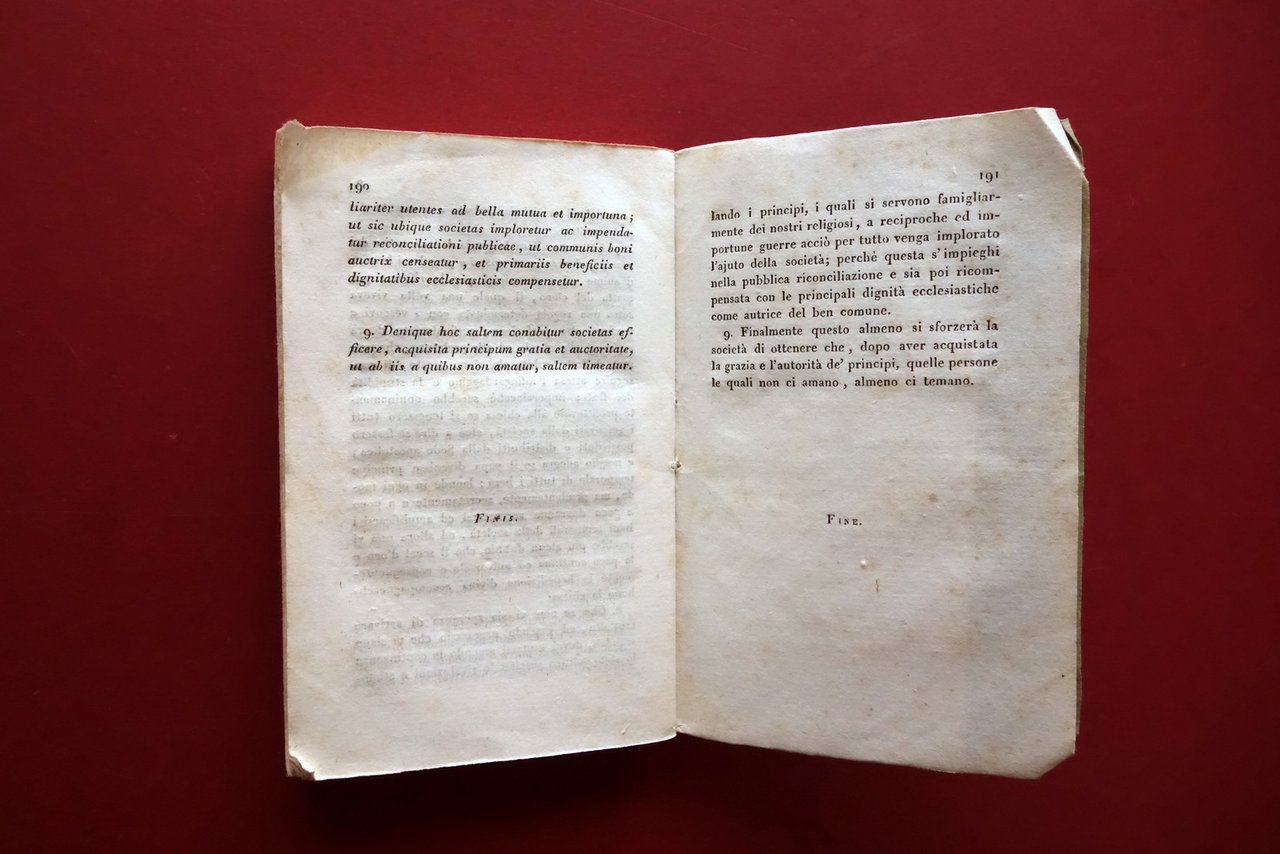 190
liariter utentes ad bella mutua et importuna;
ut sic ubique societas imploretur ac impenda-
tur reconciliationi publicae, ut communis boni
auctrix censeatur, et primariis beneficiis et
dignitatibus ecclesiasticis compensetur.
9. Denique hoc saltem conabitur societas ef-
ficere, acquisita principum gratia et auctoritate,
ut ab iis a quibus non amatur, saltem timeatur.
Finis.
191
lando i principi, i quali si servono famigliar-
mente dei nostri religiosi, a reciproche ed im-
portune guerre acciò per tutto venga implorato
l'ajuto della società; perchè questa s'impieghi
nella pubblica riconciliazione e sia poi ricom-
pensata con le principali dignità ecclesiastiche
come autrice del ben comune.
9. Finalmente questo almeno si sforzerà la
società di ottenere che, dopo aver acquistata
la grazia e l'autorità de' principi, quelle persone
le quali non ci amano, almeno ci temano.
Fine.